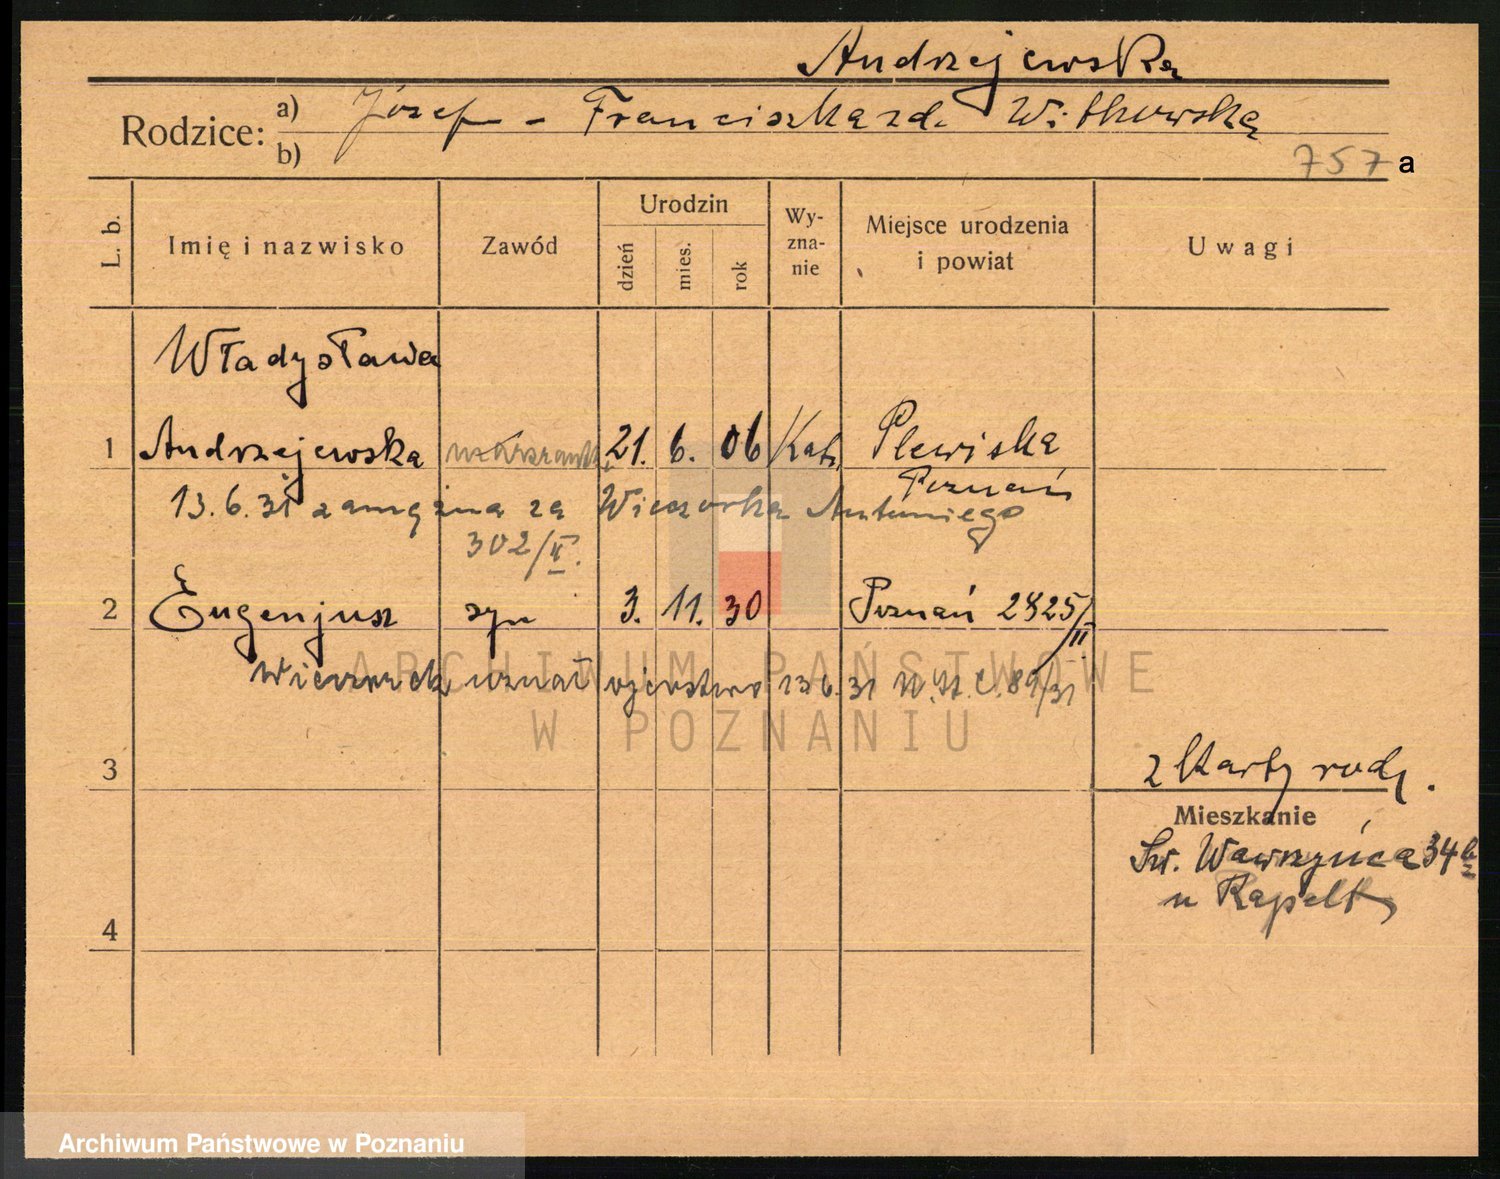 Andrzejewska
Rodzice: a) Józef - Franciszka zd. Witkowska
b)
757 a
L. b. Imię i nazwisko Zawód Urodzin dzień mies. rok Wy-zna-nie Miejsce urodzenia i powiat Uwagi
Władysława
1 Andrzejewska 21. 6. 06 Kat. Plewiska
Poznań
13.6.31 zamężna za Wieczorka Antoniego
302/II.
2 Eugenjusz syn 3. 11. 30 Poznań 2825/II
Wieczorek uznał ojcostwo 13.6.31 U.St.C. 89/31
ARCHIWUM PAŃSTWOWE
W POZNANIU
3 z Karty rodz.
Mieszkanie
Św. Wawrzyńca 34
u
4
Archiwum Państwowe w Poznaniu